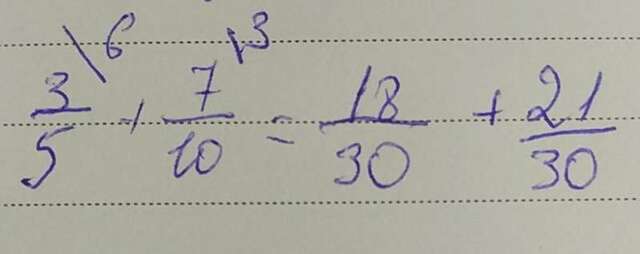 3/5 \6 + 7/10 \3 = 18/30 + 21/30